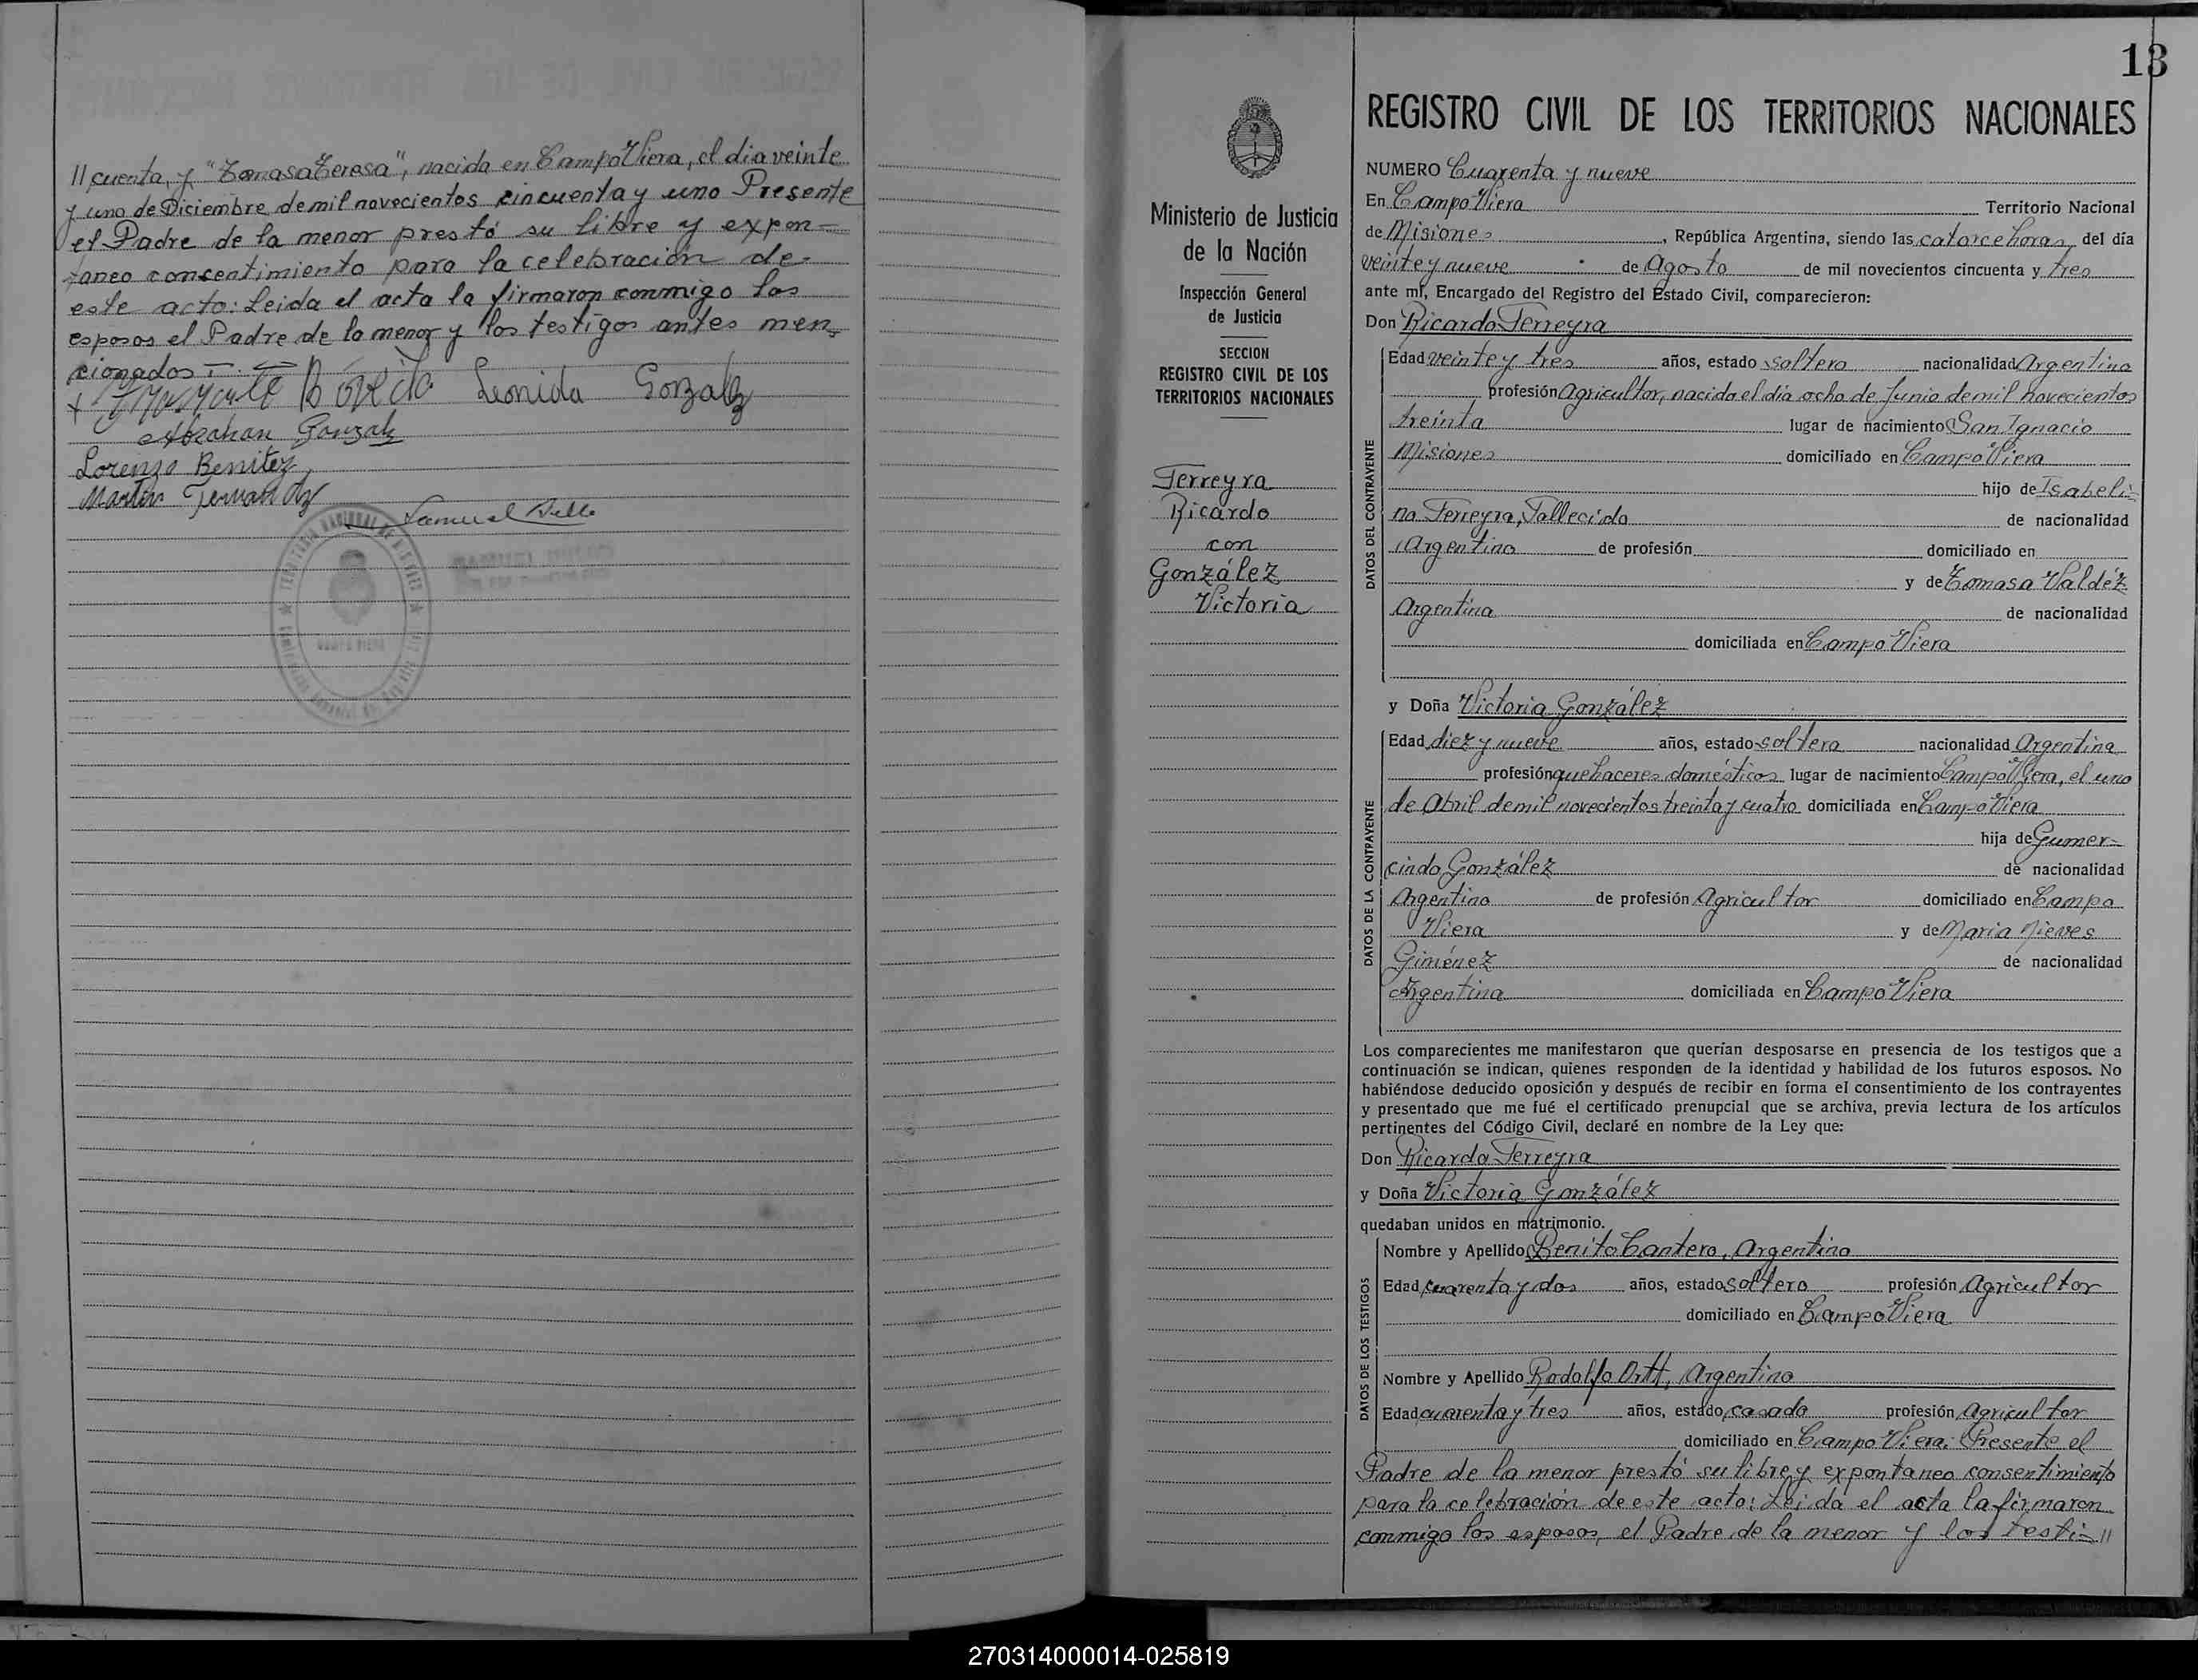 // cuenta, y "Tomasa Teresa", nacida en Campo Viera, el dia veinte
y uno de Diciembre de mil novecientos cincuenta y uno Presente
el Padre de la menor prestó su libre y expon=
taneo consentimiento para la celebración de
este acto: Leida el acta la firmaron conmigo los
esposos el Padre de la menor y los testigos antes men=
cionados
Leonida Gonzalez
Abrahan Gonzalez
Lorenzo Benitez
Martin Fernandez
Samuel
CAMPO VIERA
13
REGISTRO CIVIL DE LOS TERRITORIOS NACIONALES
Ministerio de Justicia
de la Nación
Inspección General
de Justicia
SECCION
REGISTRO CIVIL DE LOS
TERRITORIOS NACIONALES
Ferreyra
Ricardo
con
González
Victoria
NUMERO Cuarenta y nueve
En Campo Viera Territorio Nacional
de Misiones, República Argentina, siendo las catorce horas del día
veinte y nueve de Agosto de mil novecientos cincuenta y tres
ante mí, Encargado del Registro del Estado Civil, comparecieron:
Don Ricardo Ferreyra
DATOS DEL CONTRAYENTE
Edad veinte y tres años, estado soltero nacionalidad Argentina
profesión Agricultor, nacido el día ocho de Junio de mil novecientos
treinta lugar de nacimiento San Ignacio
Misiones domiciliado en Campo Viera
hijo de Isabeli=
no Ferreyra, Fallecido de nacionalidad
Argentino de profesión domiciliado en
y de Tomasa Valdéz
Argentina de nacionalidad
domiciliada en Campo Viera
y Doña Victoria González
DATOS DE LA CONTRAYENTE
Edad diez y nueve años, estado soltera nacionalidad Argentina
profesión quehaceres domésticos lugar de nacimiento Campo Viera, el uno
de Abril de mil novecientos treinta y cuatro domiciliada en Campo Viera
hija de Gumer=
cindo González de nacionalidad
Argentino de profesión Agricultor domiciliado en Campo
Viera y de Maria Nieves
Giménez de nacionalidad
Argentina domiciliada en Campo Viera
Los comparecientes me manifestaron que querían desposarse en presencia de los testigos que a
continuación se indican, quienes responden de la identidad y habilidad de los futuros esposos. No
habiéndose deducido oposición y después de recibir en forma el consentimiento de los contrayentes
y presentado que me fué el certificado prenupcial que se archiva, previa lectura de los artículos
pertinentes del Código Civil, declaré en nombre de la Ley que:
Don Ricardo Ferreyra
y Doña Victoria González
quedaban unidos en matrimonio.
DATOS DE LOS TESTIGOS
Nombre y Apellido Benito Cantero, Argentino
Edad cuarenta y dos años, estado soltero profesión Agricultor
domiciliado en Campo Viera
Nombre y Apellido Rodolfo Ortt, Argentino
Edad cuarenta y tres años, estado casado profesión Agricultor
domiciliado en Campo Viera: Presente el
Padre de la menor prestó su libre y expontaneo consentimiento
para la celebración de este acto: Leida el acta la firmaron
conmigo los esposos, el Padre de la menor y los testi=//
270314000014-025819